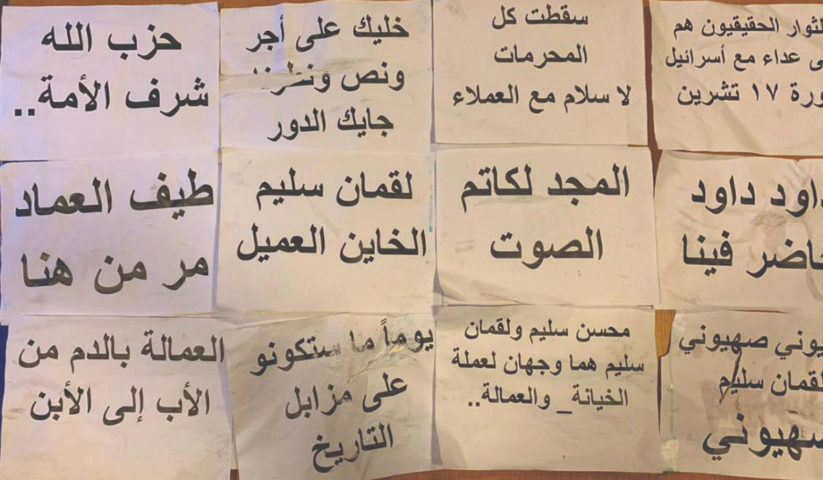 لثوار الحقيقيون هم
عداء مع أسرائيل
ورة ١٧ تشرين
سقطت كل
المحرمات
لا سلام مع العملاء
خليك على أجر
ونص ونطرنا
جايك الدور
حزب الله
شرف الأمة..
داود داود
حاضر فينا
المجد لكاتم
الصوت
لقمان سليم
الخاين العميل
طيف العماد
مر من هنا
يوني صهيوني
لقمان سليم
صهيوني
محسن سليم ولقمان
سليم هما وجهان لعملة
الخيانة_ والعمالة..
يوماً ما ستكونو
على مزابل
التاريخ
العمالة بالدم من
الأب إلى الأبن